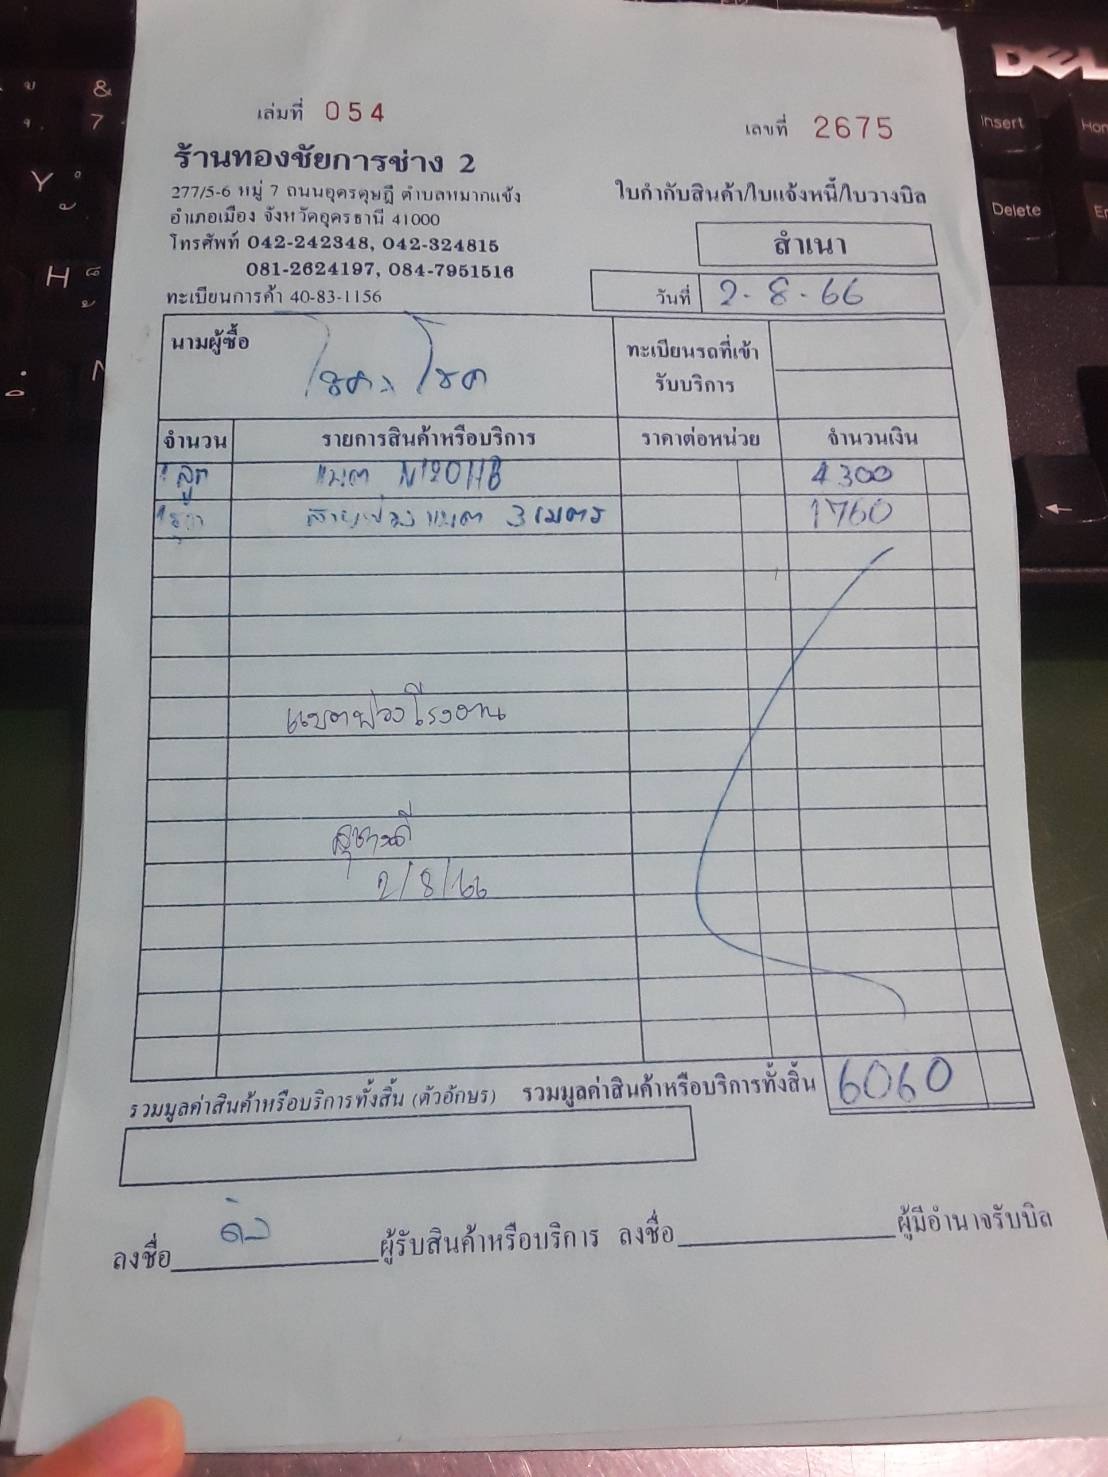 เล่มที่ 054
เลขที่ 2675
ร้านทองชัยการช่าง 2
277/5-6 หมู่ 7 ถนนอุดรดุษฎี ตำบลหมากแข้ง
อำเภอเมือง จังหวัดอุดรธานี 41000
โทรศัพท์ 042-242348, 042-324815
081-2624197, 084-7951516
ทะเบียนการค้า 40-83-1156
ใบกำกับสินค้า/ใบแจ้งหนี้/ใบวางบิล
สำเนา
วันที่ 2-8-66
นามผู้ซื้อ
ทะเบียนรถที่เข้า
รับบริการ
จำนวน รายการสินค้าหรือบริการ ราคาต่อหน่วย จำนวนเงิน
1 ลูก แบต N120 4300
สายพ่วงแบต 3 เมตร 1760
แบตพ่วงโรงงาน
2/8/66
รวมมูลค่าสินค้าหรือบริการทั้งสิ้น (ตัวอักษร) รวมมูลค่าสินค้าหรือบริการทั้งสิ้น 6060
ลงชื่อ ผู้รับสินค้าหรือบริการ ลงชื่อ ผู้มีอำนาจรับบิล
DELL
Insert
Delete
&
7
Y
H